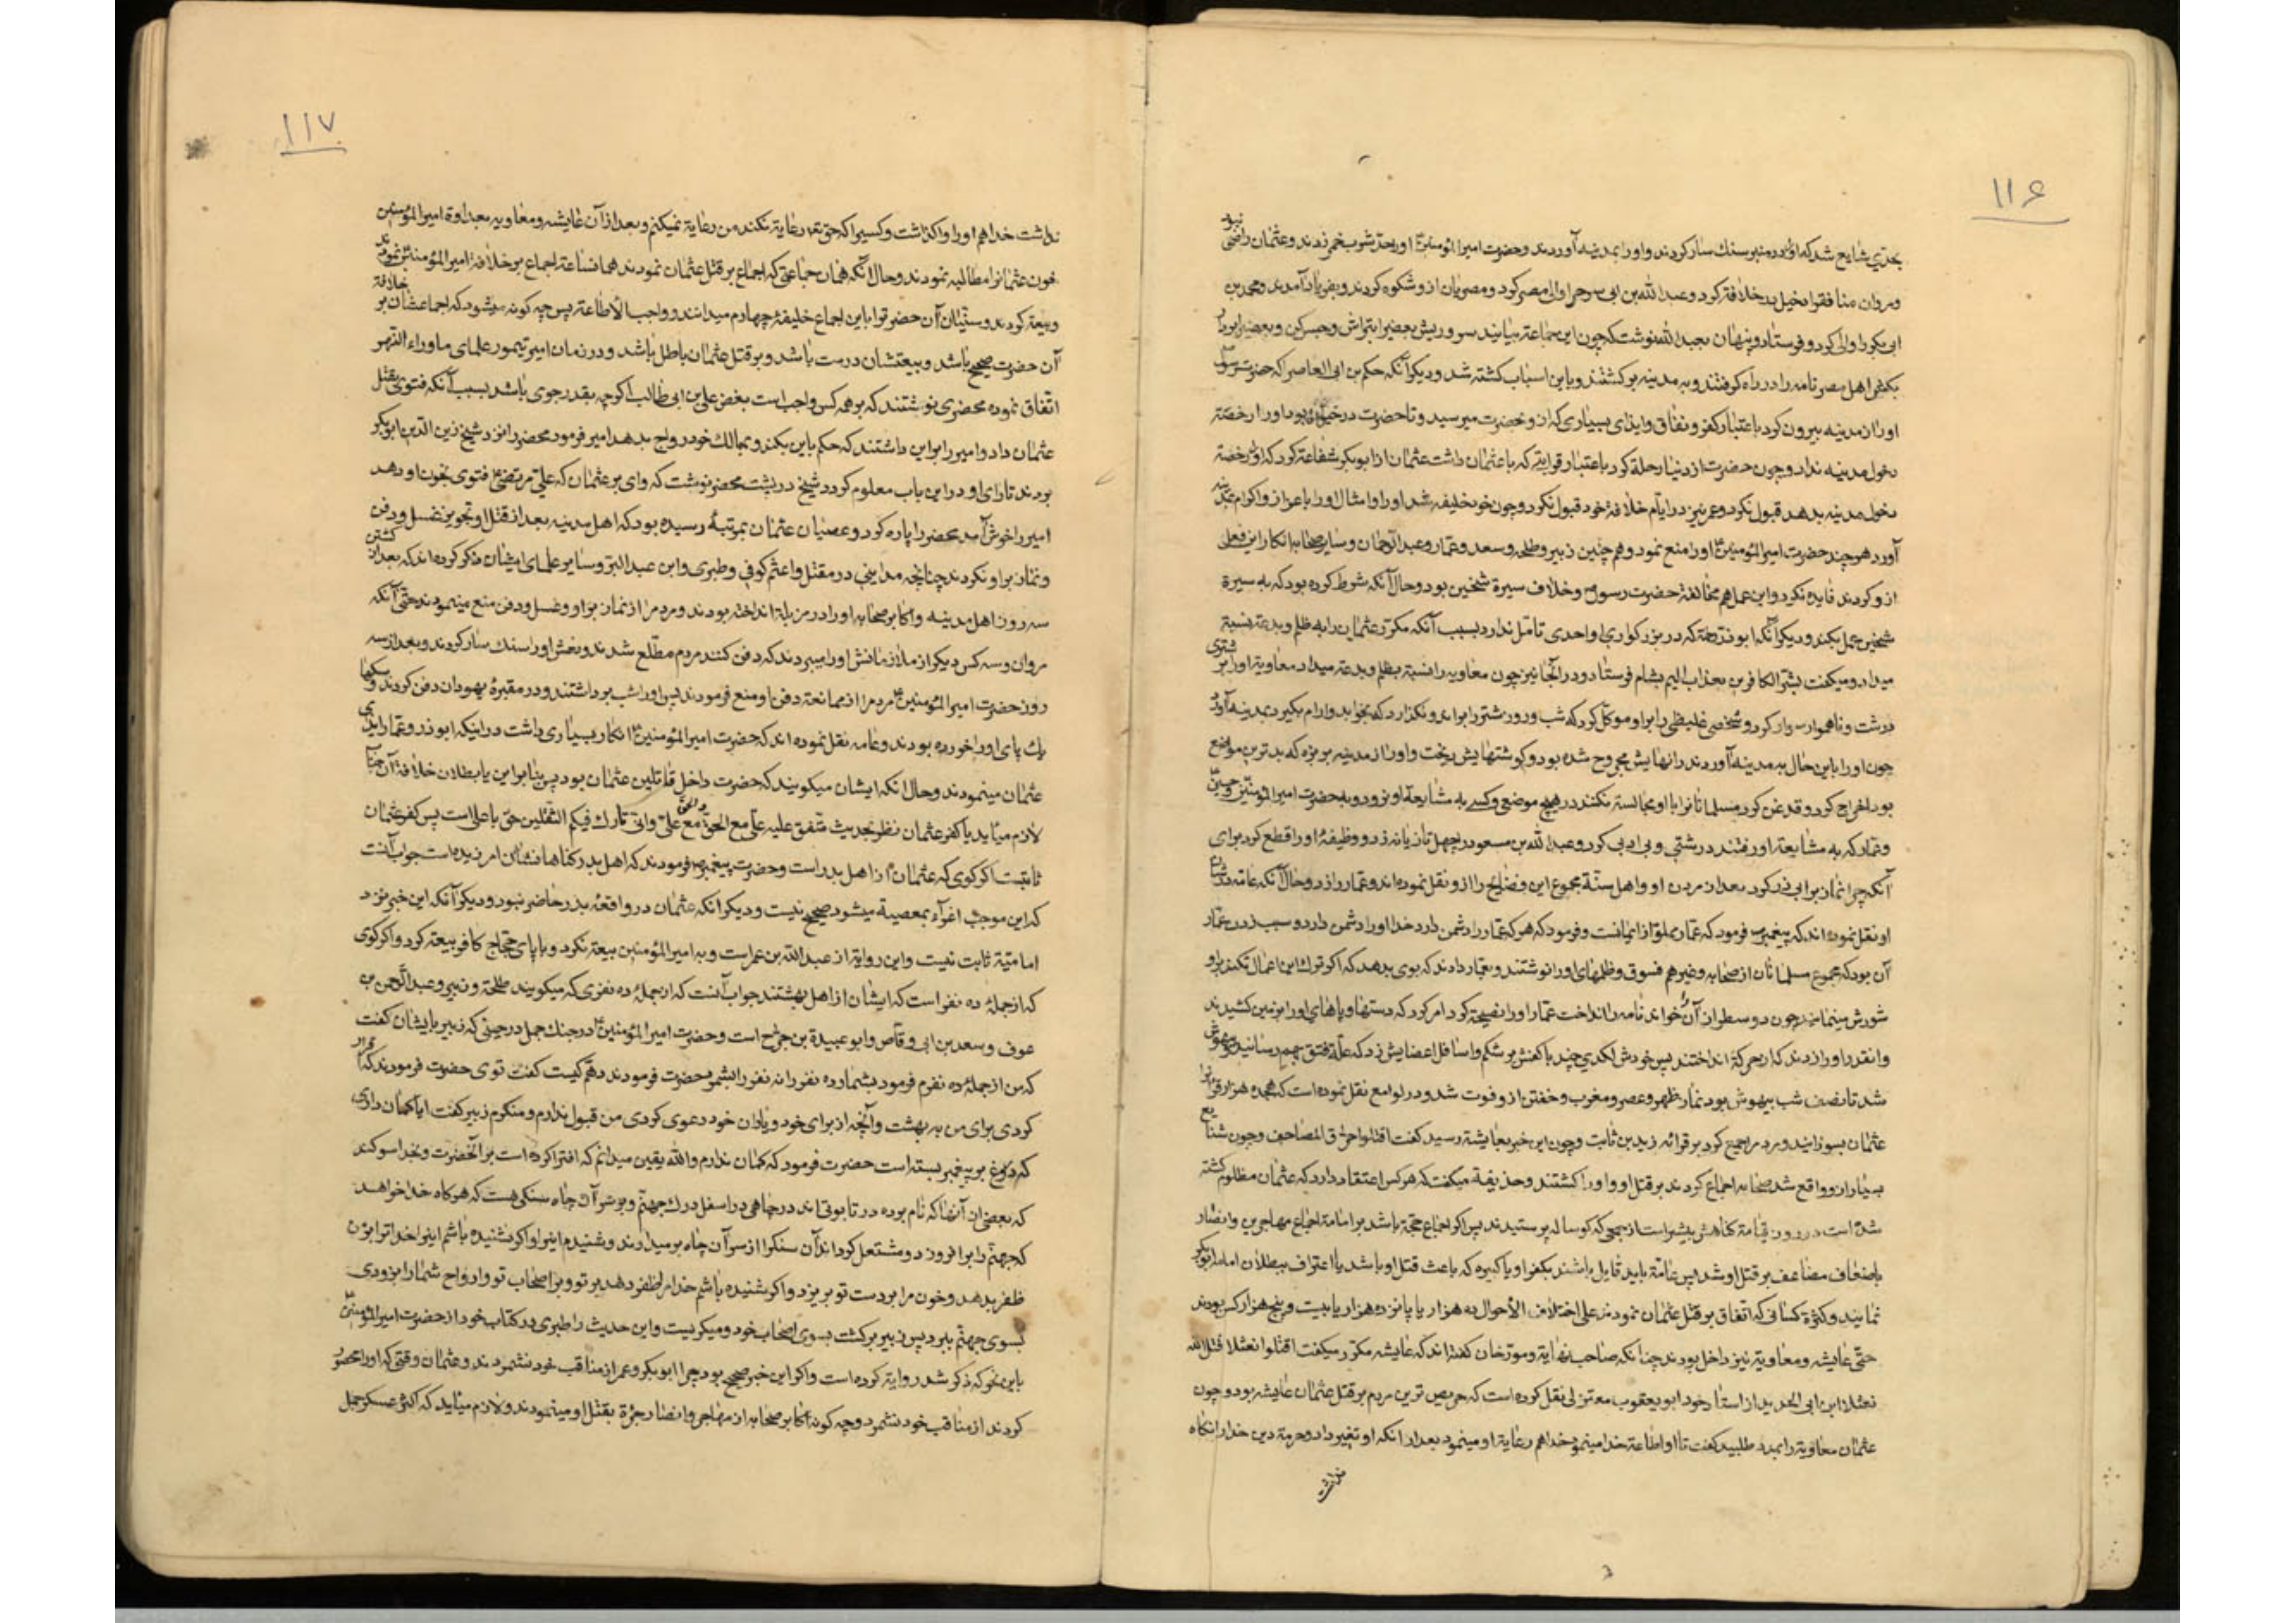 ۱۱۶
بحدی شایع شد که او را در منبر سنک سار کردند و او را بمدینه آوردند و حضرت امیرالمؤمنین ع او را حد شرب خمر زدند و عثمان راضی نبود
و مروان منافق را دخیل در خلافة کرد و عبد الله بن ابی سرح را والی مصر کرد و مصریان از و شکوه کردند و بفریاد آمدند و محمد بن
ابی بکر را والی کرد و فرستاد و پنهان بعبد الله نوشت که چون این جماعة بیایند سر و ریش بعضی را بتراش و حبس کن و بعضی را بردار
بکش اهل مصر نامه را در راه کرفتند و به مدینه برکشتند و باین اسباب کشته شد و دیکر آنکه حکم بن ابی العاص را که حضرت رسول ص
او را از مدینه بیرون کرد باعتبار کفر و نفاق و ایذای بسیاری که از و بحضرت میرسید و تا حضرت در حیوة بود او را رخصة
دخول مدینه نداد و چون حضرت از دنیا رحلة کرد باعتبار قرابتی که با عثمان داشت عثمان از ابو بکر شفاعة کرد که او را رخصة
دخول مدینه بدهد قبول نکرد و عمر نیز در ایام خلافة خود قبول نکرد و چون خود خلیفه شد او را و امثال او را باعزاز و اکرام بمدینه
آورد هر چند حضرت امیرالمؤمنین ع او را منع نمود و هم چنین زبیر و طلحه و سعد و عمار و عبد الرحمان و سایر صحابه انکار این فعل
از و کردند فایده نکرد و این عمل هم مخالفة حضرت رسول ص و خلاف سیرة شخین بود و حال آنکه شرط کرده بود که به سیرة
شخین عمل بکند و دیکر آنکه ابو ذر رحمة که در بزرکواری او احدی تأمل ندارد بسبب آنکه مکرر عثمان را به ظلم و بدعة نسبة
میداد و میکفت بشر الکافرین بعذاب الیم بشام فرستاد و در آنجا نیز چون معاویه را نسبة بظلم و بدعة میداد معاویة او را بر شتری
درشت و ناهموار سوار کرد و شخصی غلیظی را بر او موکل کرد که شب و روز شتر را براند و نکذارد که بخوابد و آرام بکیرد بمدینه آورد
چون او را باین حال به مدینه آوردند رانهایش مجروح شده بود و کوشتهایش ریخت و او را از مدینه بربزه که بدترین مواضع
بود اخراج کرد و قدغن کرد مسلمانان را با او مجالسة نکنند در هیچ موضع و کسی به مشایعة او نرود و به حضرت امیرالمؤمنین و حسنین ع
و عمار که به مشایعة او رفتند درشتی و بی ادبی کرد و عبد الله بن مسعود را چهل تازیانه زد و وظیفهٔ او را قطع کرد برای
آنکه چرا نماز بر ابی ذر کرد بعد از مردن او و اهل سنّة مجموع این فضایح را از و نقل نموده اند و عمار را زد و حال آنکه عامه در شان
او نقل نموده اند که پیغمبر ص فرمود که عمار مملوّ از ایمانست و فرمود که هر که عمار را دشمن دارد خدا او را دشمن دارد و سبب زدن عمار
آن بود که مجموع مسلمانان از صحابه و غیرهم فسوق و ظلمهای او را نوشتند و بعمار دادند که بوی بدهد که اکر ترک این اعمال نکند بر او
شورش مینمایند چون دو سطر از آن را خواند نامه را انداخت عمار او را نصیحة کرد امر کرد که دستها و پاهای او را بزمین کشیدند
و انقدر او را زدند که از حرکة انداختند پس خودش لکدی چند با کفش بر شکم و اسافل اعضایش زد که علة فتق بهم رسانید و بیهوش
شد تا نصف شب بیهوش بود نماز ظهر و عصر و مغرب و خفتن از و فوت شد و در لوامع نقل نموده است که هجده هزار قران را
عثمان بسوزانید و مردم را جمع کرد بر قرائه زید بن ثابت و چون این خبر بعایشة رسید کفت اقتلوا حراق المصاحف و چون شنایع
بسیار از و واقع شد صحابه اجماع کردند بر قتل او و او را کشتند و حذیفة میکفت که هر کس اعتقاد دارد که عثمان مظلوم کشته
شده است در روز قیامة کناهش بیشتر است از جمعی که کوساله پرستیدند پس اکر اجماع حجّة باشد بر امامة اجماع مهاجرین و انصار
باضعاف مضاعف بر قتل او شد پس عامّة باید قایل باشند بکفر او یا کبیره که باعث قتل او باشد یا اعتراف ببطلان امامة ابوبکر
نمایند و کثرة کسانی که اتفاق بر قتل عثمان نمودند علی اختلاف الأحوال ده هزار یا پانزده هزار یا بیست و پنج هزار کس بودند
حتّی عایشه و معاویة نیز داخل بودند چنانکه صاحب نهایة و مورّخان کفته اند که عایشه مکرّر میکفت اقتلوا نعثلا قتل الله
نعثلا ابن ابی الحدید از استاد خود ابو یعقوب معتزلی نقل کرده است که حریص ترین مردم بر قتل عثمان عایشه بود و چون
عثمان معاویة را بمدد طلبید کفت تا او اطاعة خدا مینمود خدا هم رعایة او مینمود بعد از انکه او تغییر داد و حرمة دین خدا را نکاه
نداشت
۱۱۷
نداشت خدا هم او را واکذاشت و کسیرا که حق تعـ رعایة نکند من رعایة نمیکنم و بعد از آن عایشه و معاویه بعداوة امیرالمؤمنین
خون عثمانرا مطالبه نمودند و حال آنکه همان جماعتی که اجماع بر قتل عثمان نمودند همانساعة اجماع بر خلافة امیرالمؤمنین ع نمودند
و بیعة کردند و سنّیان آن حضرترا باین اجماع خلیفهٔ چهارم میدانند و واجب الأطاعة پس چه کونه میشود که اجماعشان بر خلافة
آن حضرت صحیح باشد و بیعتشان درست باشد و بر قتل عثمان باطل باشد و در زمان امیر تیمور علمای ماوراء النهر
اتّفاق نموده محضری نوشتند که بر همه کس واجب است بغض علی بن ابی طالب اکر چه بقدر جوی باشد بسبب آنکه فتوی بقتل
عثمان داد و امیر را بر این داشتند که حکم باین بکند و بممالک خود رواج بدهد امیر فرمود محضر را نزد شیخ زین الدین ابو بکر
بردند تا رای او در این باب معلوم کردد شیخ در پشت محضر نوشت که وای بر عثمان که علی مرتضی ع فتوی بخون او دهد
امیر را خوش آمد محضر را پاره کرد و عصیان عثمان بمرتبهٔ رسیده بود که اهل مدینه بعد از قتل او تجویز غسل و دفن
و نماز بر او نکردند چنانچه مداینی در مقتل و اعثم کوفی و طبری و ابن عبد البر و سایر علمای ایشان ذکر کرده اند که بعد از کشتن
سه روز اهل مدینه و اکابر صحابه او را در مزبله انداخته بودند و مردم را از نماز بر او و غسل و دفن منع مینمودند حتّی آنکه
مروان و سه کس دیکر از ملازمانش او را میبردند که دفن کنند مردم مطّلع شدند و نعش او را سنک سار کردند و بعد از سه
روز حضرت امیرالمؤمنین ع مردم را از ممانعة دفن او منع فرمودند پس او را شب برداشتند و در مقبرهٔ یهودان دفن کردند و سکها
یک پای او را خورده بودند و عامه نقل نموده اند که حضرت امیرالمؤمنین ع انکار بسیاری داشت در اینکه ابو ذر و عمار را بدی
عثمان مینمودند و حال انکه ایشان میکویند که حضرت داخل قاتلین عثمان بود پس بنا بر این یا بطلان خلافة آن جناب
لازم میآید یا کفر عثمان نظر بحدیث متّفق علیه علی مع الحق و الحق مع علی و انی تارک فیکم الثقلین حق با علی است پس کفر عثمان
ثابتست اکر کوی که عثمان از اهل بدر است و حضرت پیغمبر ص فرمودند که اهل بدر کناهانشان امرزیده است جواب آنست
که این موجب اغرآء بمعصیة میشود صحیح نیست و دیکر انکه عثمان در واقعهٔ بدر حاضر نبود و دیکر آنکه این خبر نزد
امامیّة ثابت نیست و این روایة از عبد الله بن عمر است و به امیرالمؤمنین بیعة نکرد و با پای حجاج کافر بیعة کرد و اکر کوی
که از جملهٔ ده نفر است که ایشان از اهل بهشتند جواب آنست که از جملهٔ ده نفری که میکویند طلحة و زبیر و عبد الرحمن بن
عوف و سعد بن ابی وقاص و ابو عبیدة بن جراح است و حضرت امیرالمؤمنین ع در جنک جمل در حینی که زبیر بایشان کفت
که من از جملهٔ ده نفرم فرمود بشمار ده نفر را نه نفر را بشمرد حضرت فرمودند دهم کیست کفت توی حضرت فرمودند که اقرار
کردی برای من به بهشت و آنچه از برای خود و یاران خود دعوی کردی من قبول ندارم و منکرم زبیر کفت ایا کمان داری
که دروغ بر پیغمبر بسته است حضرت فرمود که کمان ندارم والله یقین میدانم که افترا کرده است بر آنحضرت و بخدا سوکند
که بعضی از آنها که نام برده در تابوتی اند در چاهی در اسفل درک جهنّم و بر سر آن چاه سنکی هست که هر کاه خدا خواهد
که جهنّم را برافروزد و مشتعل کرداند آن سنک را از سر آن چاه بر میدارند و شنیدم اینرا و اکر نشنیده باشم اینرا خدا ترا بر من
ظفر بدهد و خون مرا بر دست تو بریزد و اکر شنیده باشم خدا مرا ظفر دهد بر تو و بر اصحاب تو و ارواح شما را بزودی
بسوی جهنّم ببرد پس زبیر برکشت بسوی اصحاب خود و میکریست و این حدیث را طبری در کتاب خود از حضرت امیرالمؤمنین ع
باین نحو که ذکر شد روایة کرده است و اکر این خبر صحیح بود چرا ابو بکر و عمر از مناقب خود نشمردند و عثمان وقتی که او را محصور
کردند از مناقب خود نشمرد و چه کونه اکابر صحابه از مهاجر و انصار جرءة بقتل او مینمودند و لازم میآید که اکثر عسکر جمل